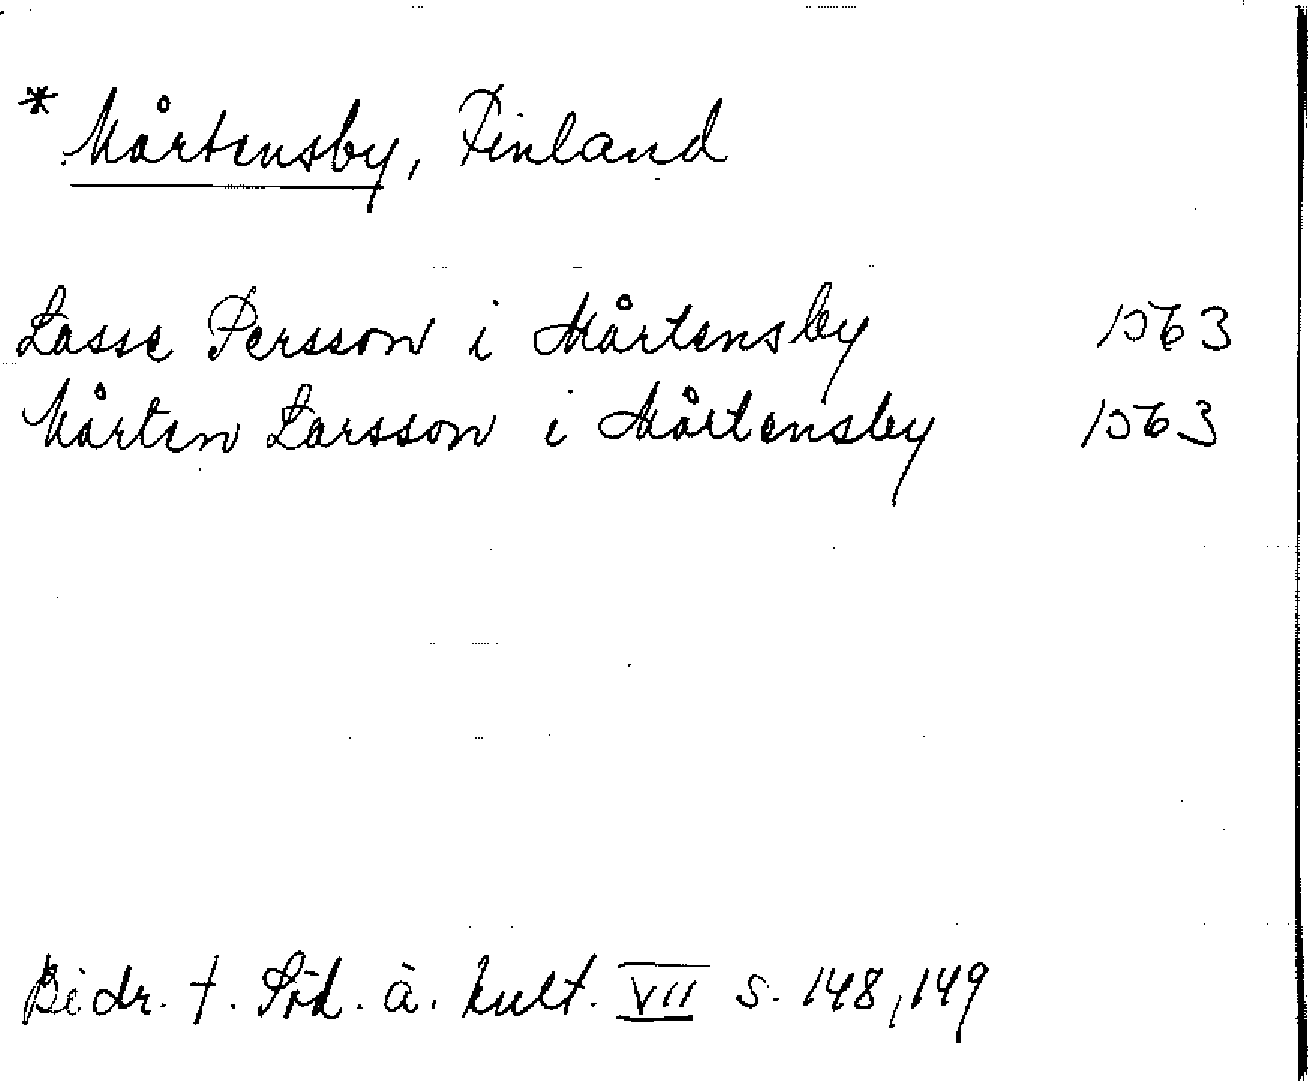 * Mårtensby, Finland
Lasse Persson i Mårtensby 1563
Mårten Larsson i Mårtensby 1563
Bidr. t. Söd. ä. kult. VII s. 148, 149